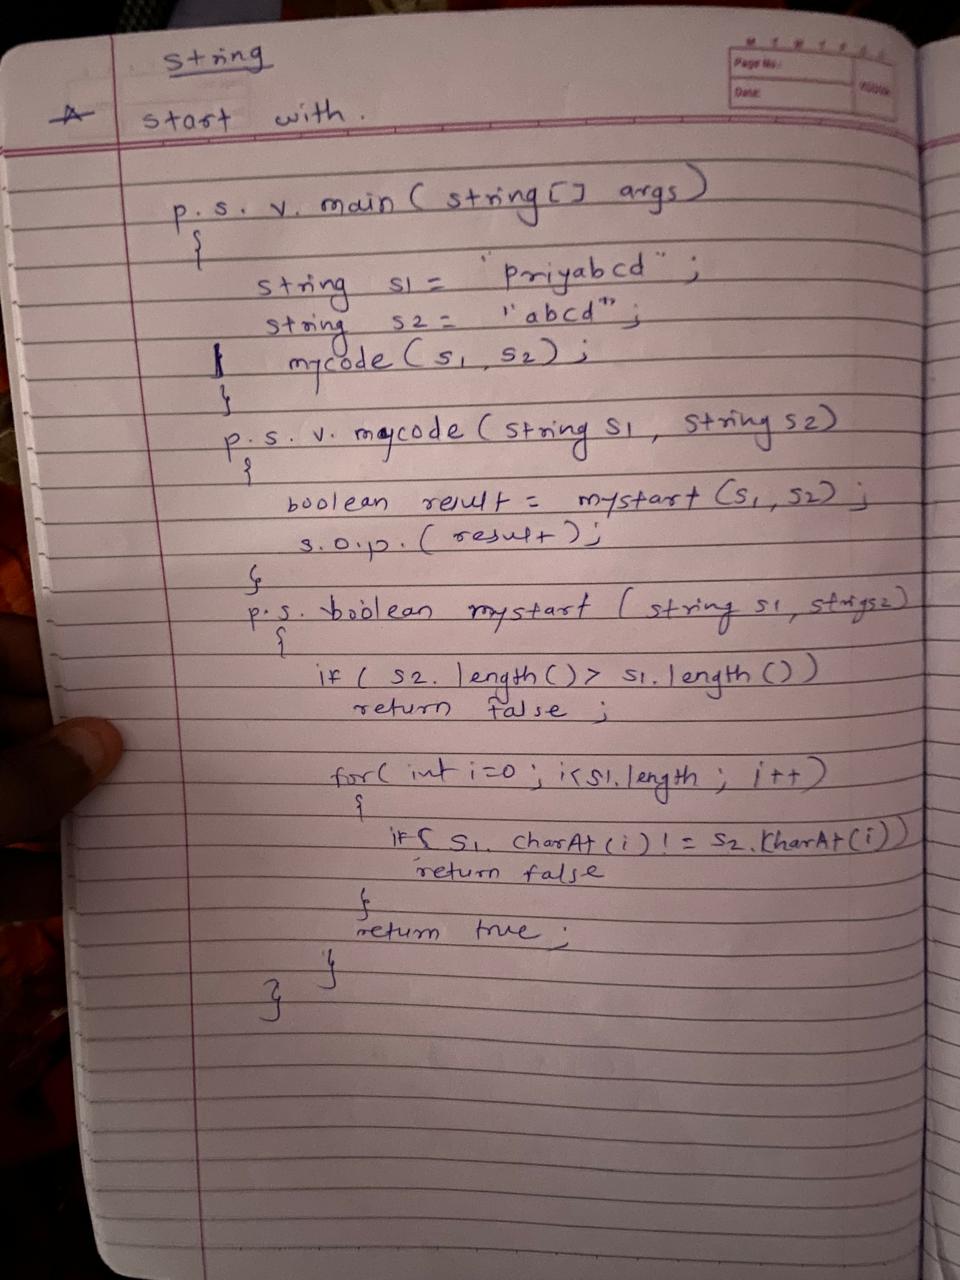 string
start with.
Page No.:
Date:
p. s. v. main ( string [] args )
{
string s1 = "priyabcd" ;
string s2 = "abcd" ;
mycode ( s1, s2 ) ;
}
p. s. v. mycode ( string s1, string s2 )
{
boolean result = mystart ( s1, s2 ) ;
s.o.p. ( result ) ;
}
p. s. boolean mystart ( string s1, strigs2 )
{
if ( s2. length () > s1. length () )
return false ;
for( int i=0 ; i<s1. length ; i++ )
{
if ( s1. charAt (i) ! = s2. charAt (i) )
return false
}
return true ;
}
}